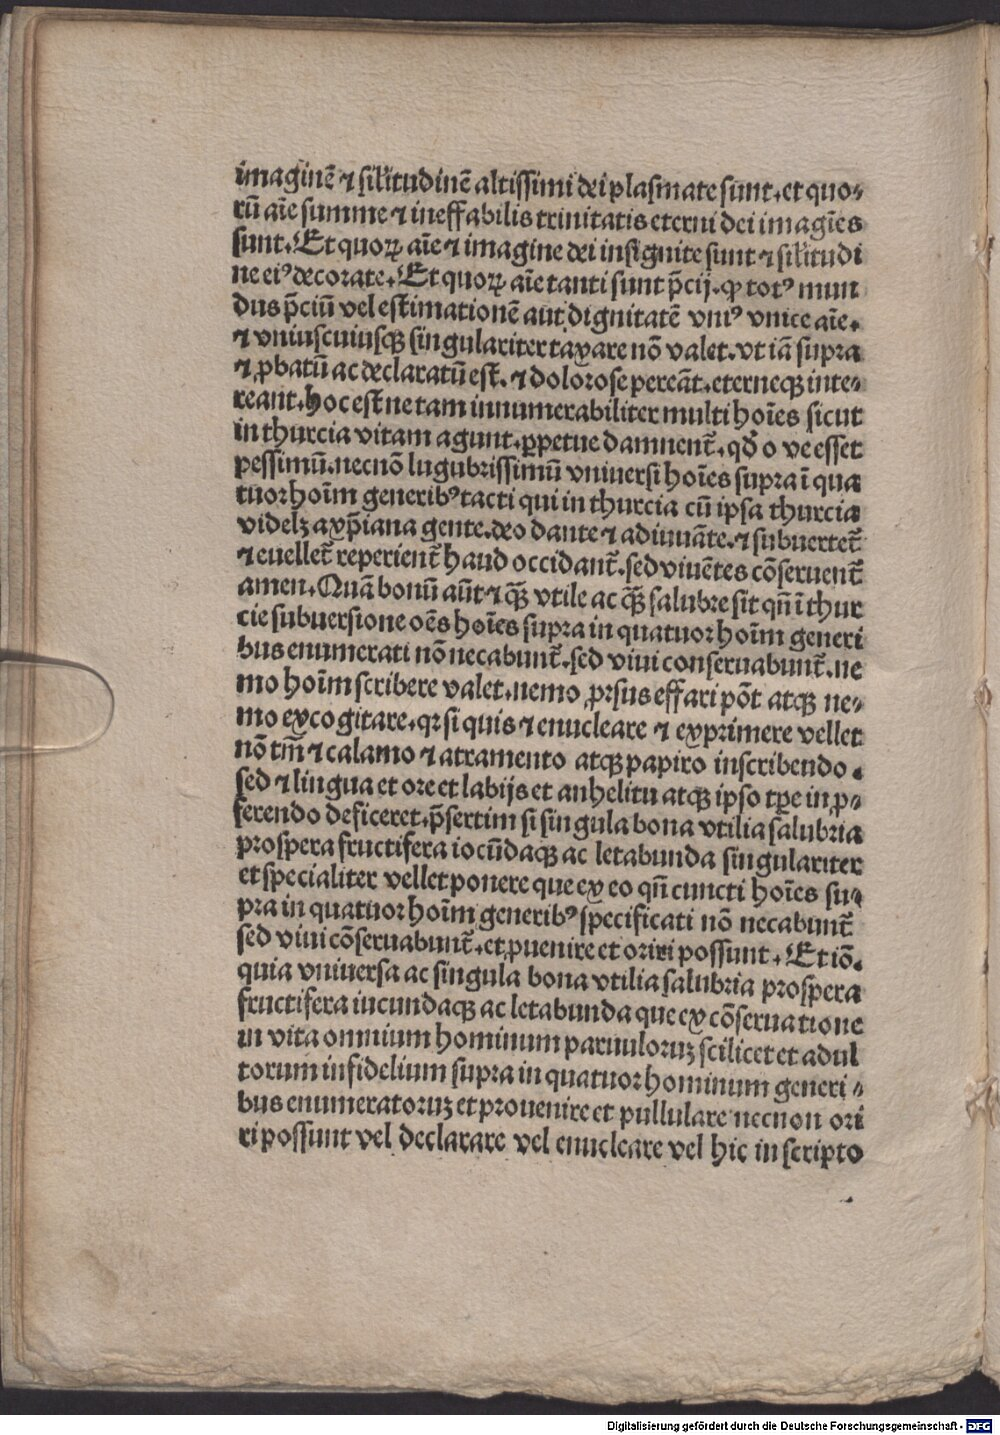 imaginē ⁊ silitudinē altissimi dei plasmate sunt. et quo⸗
rū aīe summe ⁊ ineffabilis trinitatis eterni dei imagīes
sunt. Et quoꝝ aīe ⁊ imagine dei insignite sunt ⁊ silitudi
ne eiꝰ decorate. Et quoꝝ aīe tanti sunt p̄cij. ꝙ totꝰ mun
dus p̄ciū vel estimationē aut dignitatē vniꝰ vnice aīe.
⁊ vniuscuiusqꝫ singulariter taxare nō valet. vt iā supra
⁊ ꝓbatū ac declaratū est. ⁊ dolorose pereāt. eterneqꝫ inte⸗
reant. hoc est ne tam innumerabiliter multi hoīes sicut
in thurcia vitam agunt. ꝑpetue damnent̄. qd̄ o ve esset
pessimū. necnō lugubrissimū vniuersi hoīes supra ī qua
tuor hoīm generibꝰ tacti qui in thurcia cū ipsa thurcia
videlꝫ a xp̄iana gente. deo dante ⁊ adiuuāte. ⁊ subuertet̄
⁊ euellet̄ reperient̄ haud occidant̄. sed viuētes cōseruent̄
amen. Quā bonū aūt ⁊ qꝫ̄ vtile ac qꝫ̄ salubre sit qn̄ ī thur
cie subuersione oēs hoīes supra in quatuor hoīm generi
bus enumerati nō necabunt̄. sed viui conseruabunt̄. ne
mo hoīm scribere valet. nemo ꝓrsus effari pōt atqꝫ ne⸗
mo excogitare. qꝛ si quis ⁊ enucleare ⁊ exprimere vellet
nō tm̄ ⁊ calamo ⁊ atramento atqꝫ papiro inscribendo.
sed ⁊ lingua et ore et labijs et anhelitu atqꝫ ipso tꝑe in ꝓ⸗
ferendo deficeret. p̄sertim si singula bona vtilia salubria
prospera fructifera iocūdaqꝫ ac letabunda singulariter
et specialiter vellet ponere que ex eo qn̄ cuncti hoīes su⸗
pra in quatuor hoīm generibꝰ specificati nō necabunt̄
sed viui cōseruabunt̄. et ꝓuenire et oriri possunt. Et iō.
quia vniuersa ac singula bona vtilia salubria prospera
fructifera iucundaqꝫ ac letabunda que ex cōseruatione
in vita omnium hominum paruuloruꝫ scilicet et adul
torum infidelium supra in quatuor hominum generi⸗
bus enumeratoruꝫ et prouenire et pullulare necnon ori
ri possunt vel declarare vel enucleare vel hic in scripto
Digitalisierung gefördert durch die Deutsche Forschungsgemeinschaft - DFG